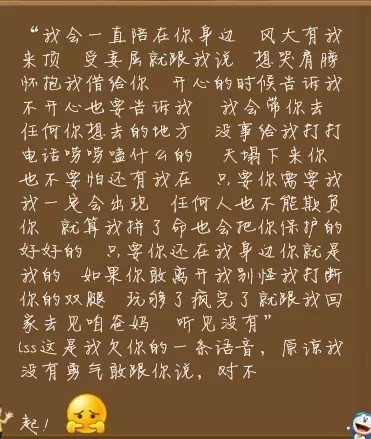 “我会一直陪在你身边　风大有我
来顶　受委屈就跟我说　想哭肩膀
怀抱我借给你　开心的时候告诉我
不开心也要告诉我　　我会带你去
任何你想去的地方　没事给我打打
电话唠唠嗑什么的　　天塌下来你
也不要怕还有我在　只要你需要我
我一定会出现　任何人也不能欺负
你　就算我拼了命也会把你保护的
好好的　只要你还在我身边你就是
我的　如果你敢离开我别怪我打断
你的双腿　玩够了疯完了就跟我回
家去见咱爸妈　听见没有”
lss这是我欠你的一条语音，原谅我
没有勇气敢跟你说，对不
起！